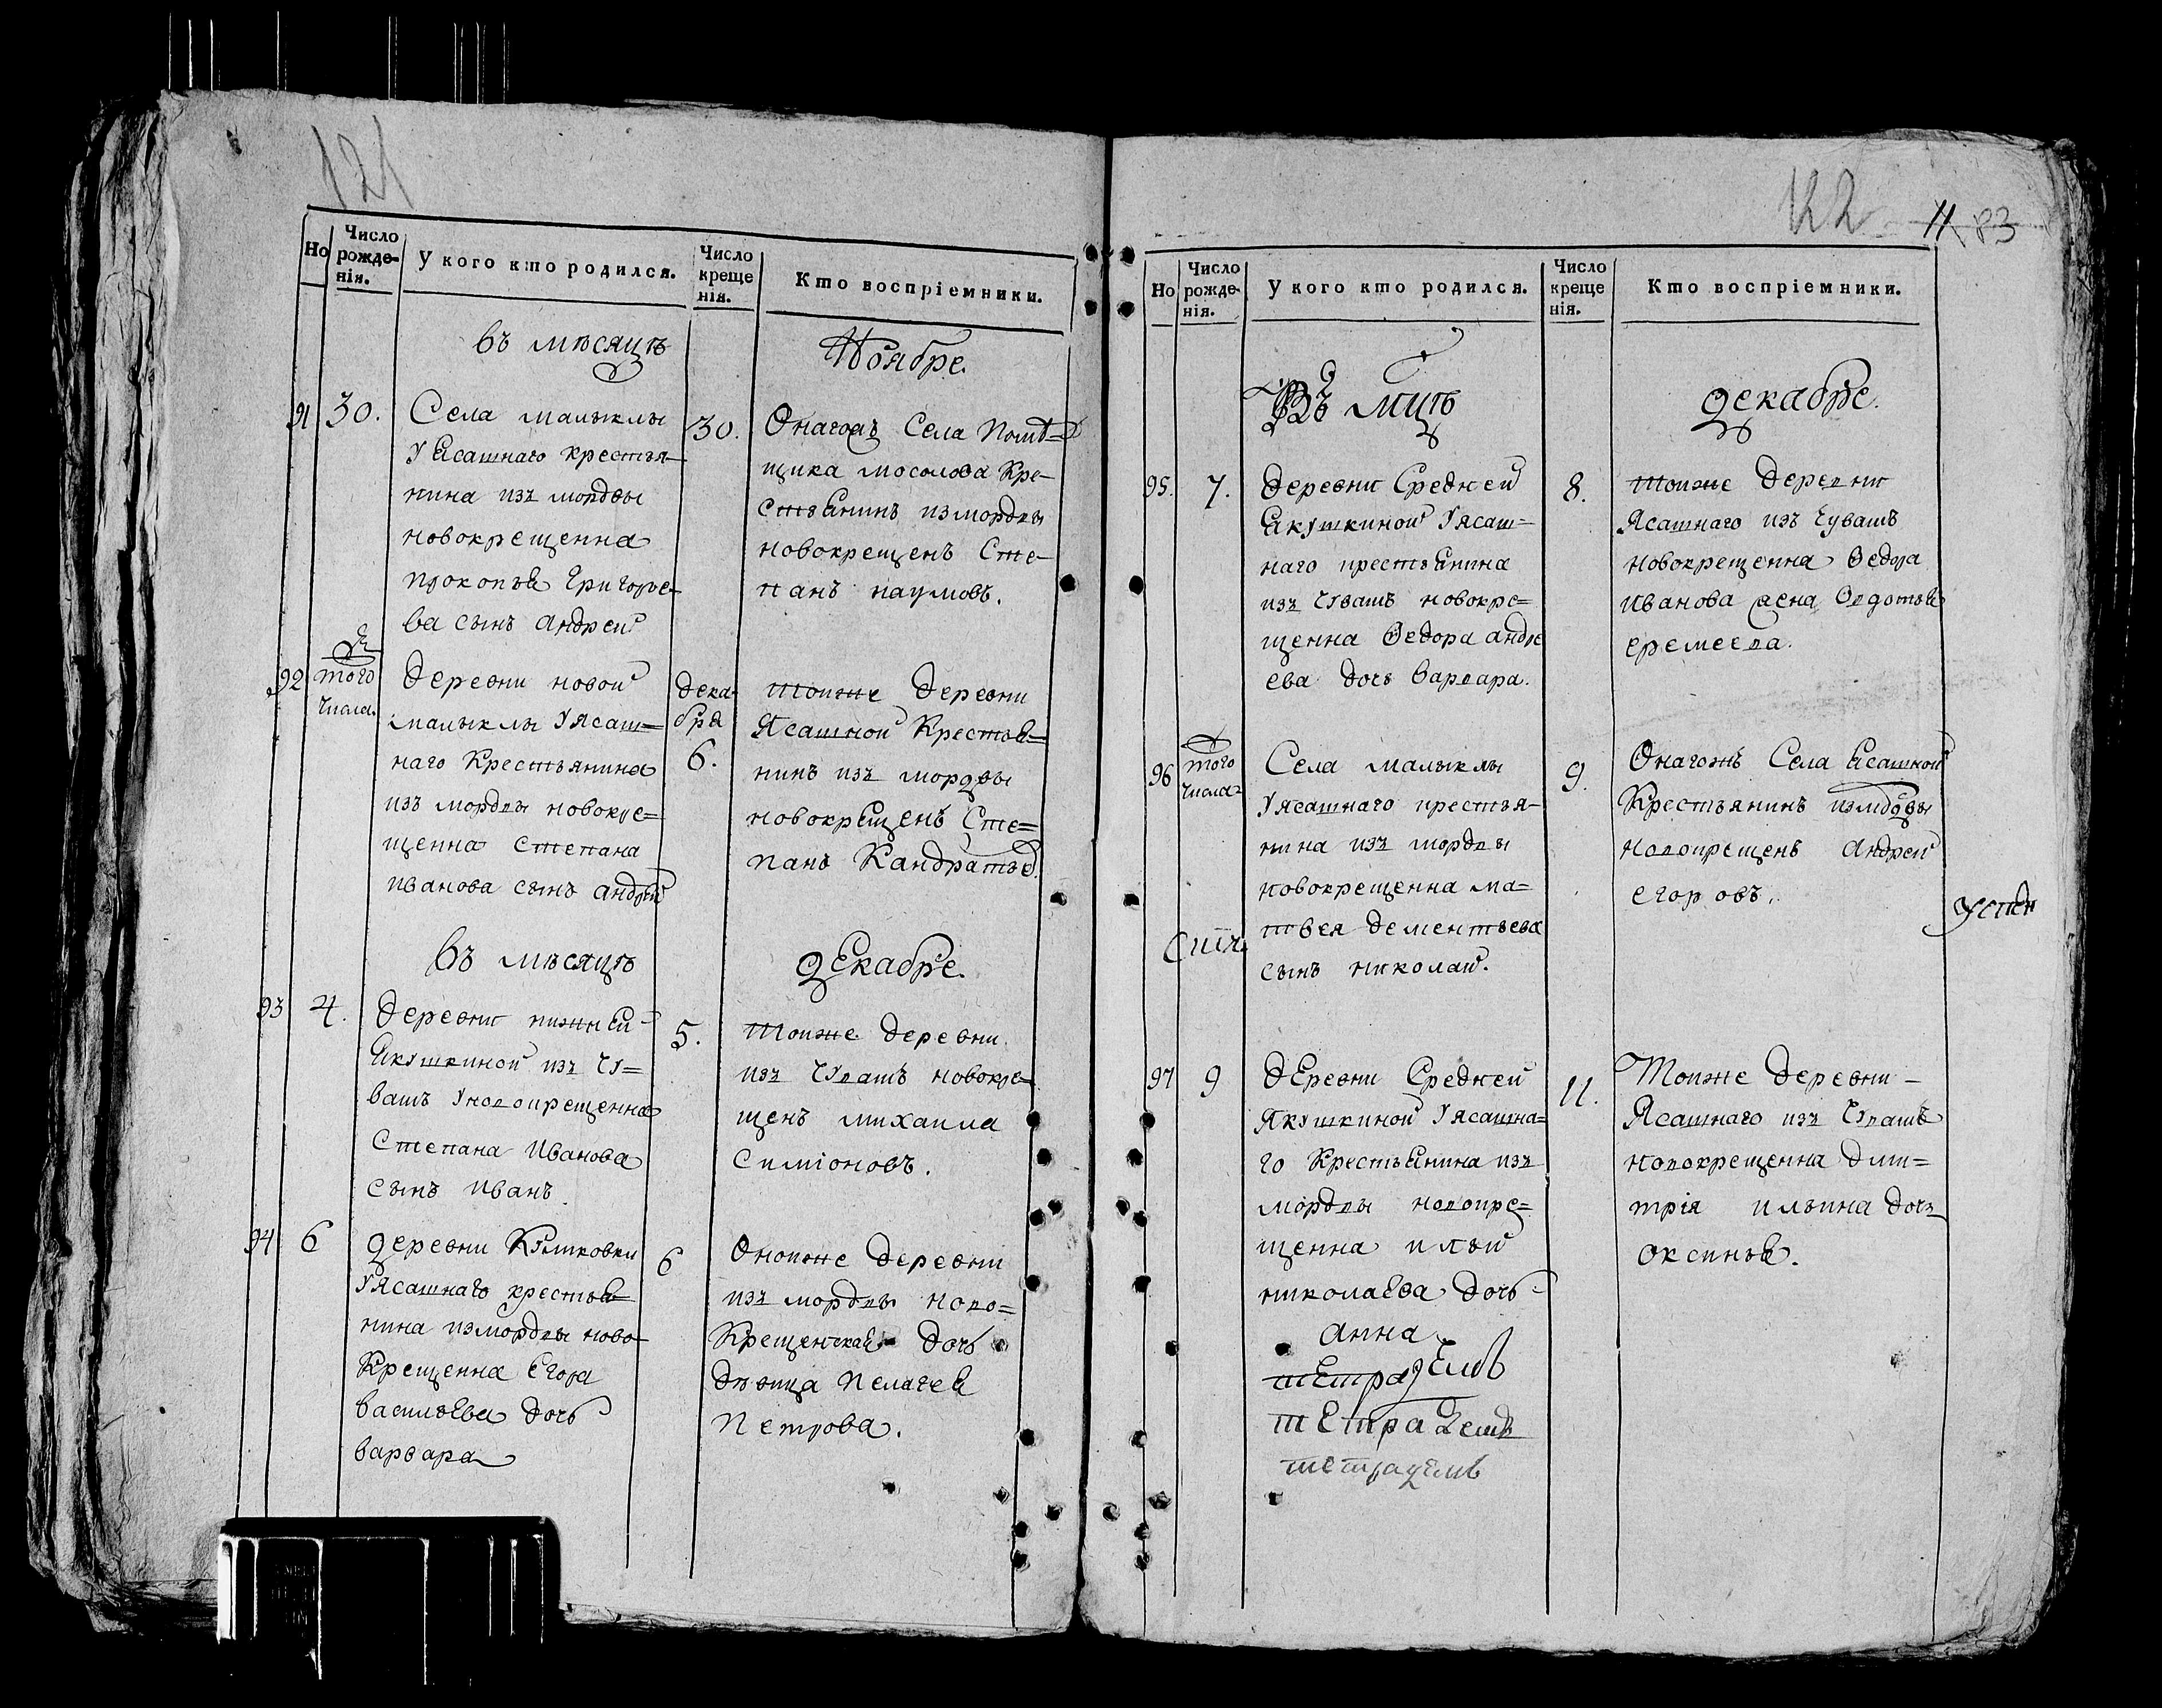 121
Но
Число рожденія.
У кого кто родился.
Число крещенія.
Кто воспріемники.
въ мѣсяцѣ
Ноябре.
91
30.
Села малыклы
у Ясашнаго крестья-
нина изъ мордвы
новокрещенна
прокопья Григорье-
ва сынъ андрей
30.
Онагожъ Села помѣ=
щика мосолова кре-
стьянинъ измордвы
новокрещенъ Сте-
панъ наумовъ.
92
того
числа.
деревни новой
малыклы уясаш=
наго Крестьянина
изъ мордвы новокре=
щенна степана
иванова сынъ андрей
дека
бря
6.
тойже деревни
Ясашной Крестья=
нинъ изъ мордвы
новокрещенъ Сте=
панъ Кандратьев.
въ мѣсяцѣ
декабре.
93
4.
деревни нижней
Якушкиной изъ чу=
вашъ уновокрещенна
Степана Иванова
сынъ иванъ
5.
тойже деревни
изъ чувашъ новокре-
щенъ михаила
симіоновъ.
94
6
деревни Кулмковки
уясашнаго крестья=
нина измордвы ново-
крещенна Егора
васильева дочь
варвара
6
Онойже деревни
изъ мордвы ново=
Крещенская дочь
дѣвица пелагея
Петрова.
122
83
Но
Число рожденія.
У кого кто родился.
Число крещенія.
Кто воспріемники.
Въ мцѣ
декабре.
95.
7.
деревни Средней
Якушкиной уясаш=
наго крестьянина
изъ чувашъ новокре=
щенна Ѳедора андре
ева дочь варвара.
8.
тойже деревни
Ясашнаго изъ чувашъ
новокрещенна Ѳедора
иванова жена Ѳедотья
еремеева.
96
того
числа
Села малыклы
уясашнаго крестья-
нина изъ мордвы
новокрещенна ма=
твея дементьева
сынъ николай.
9.
Онагожъ Села Ясашной
Крестьянинъ измордвы
новокрещенъ андрей
егоровъ.
97
9
деревни Средней
Якушкиной уясашна=
го Крестьянина изъ
мордвы новокре=
щенна ильи
николаева дочь
анна
11.
Тойже деревни -
Ясашнаго изъ чувашъ
новокрещенна дми=
трія ильина дочь
оксинья.